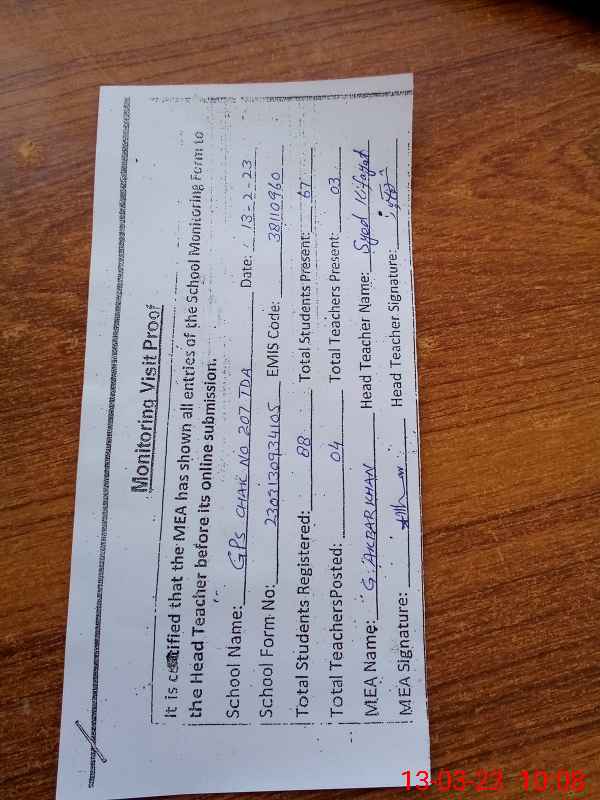 Monitoring Visit Proof
It is certified that the MEA has shown all entries of the School Monitoring Form to
the Head Teacher before its online submission.
School Name: GPS CHAK NO 207 TDA Date: 13-2-23
School Form No: 2303130934105 EMIS Code: 38110960
Total Students Registered: 88 Total Students Present: 67
Total TeachersPosted: 04 Total Teachers Present: 03
MEA Name: G. AKBAR KHAN Head Teacher Name: Syed Kifayat
MEA Signature: Head Teacher Signature:
13-03-23 10:08